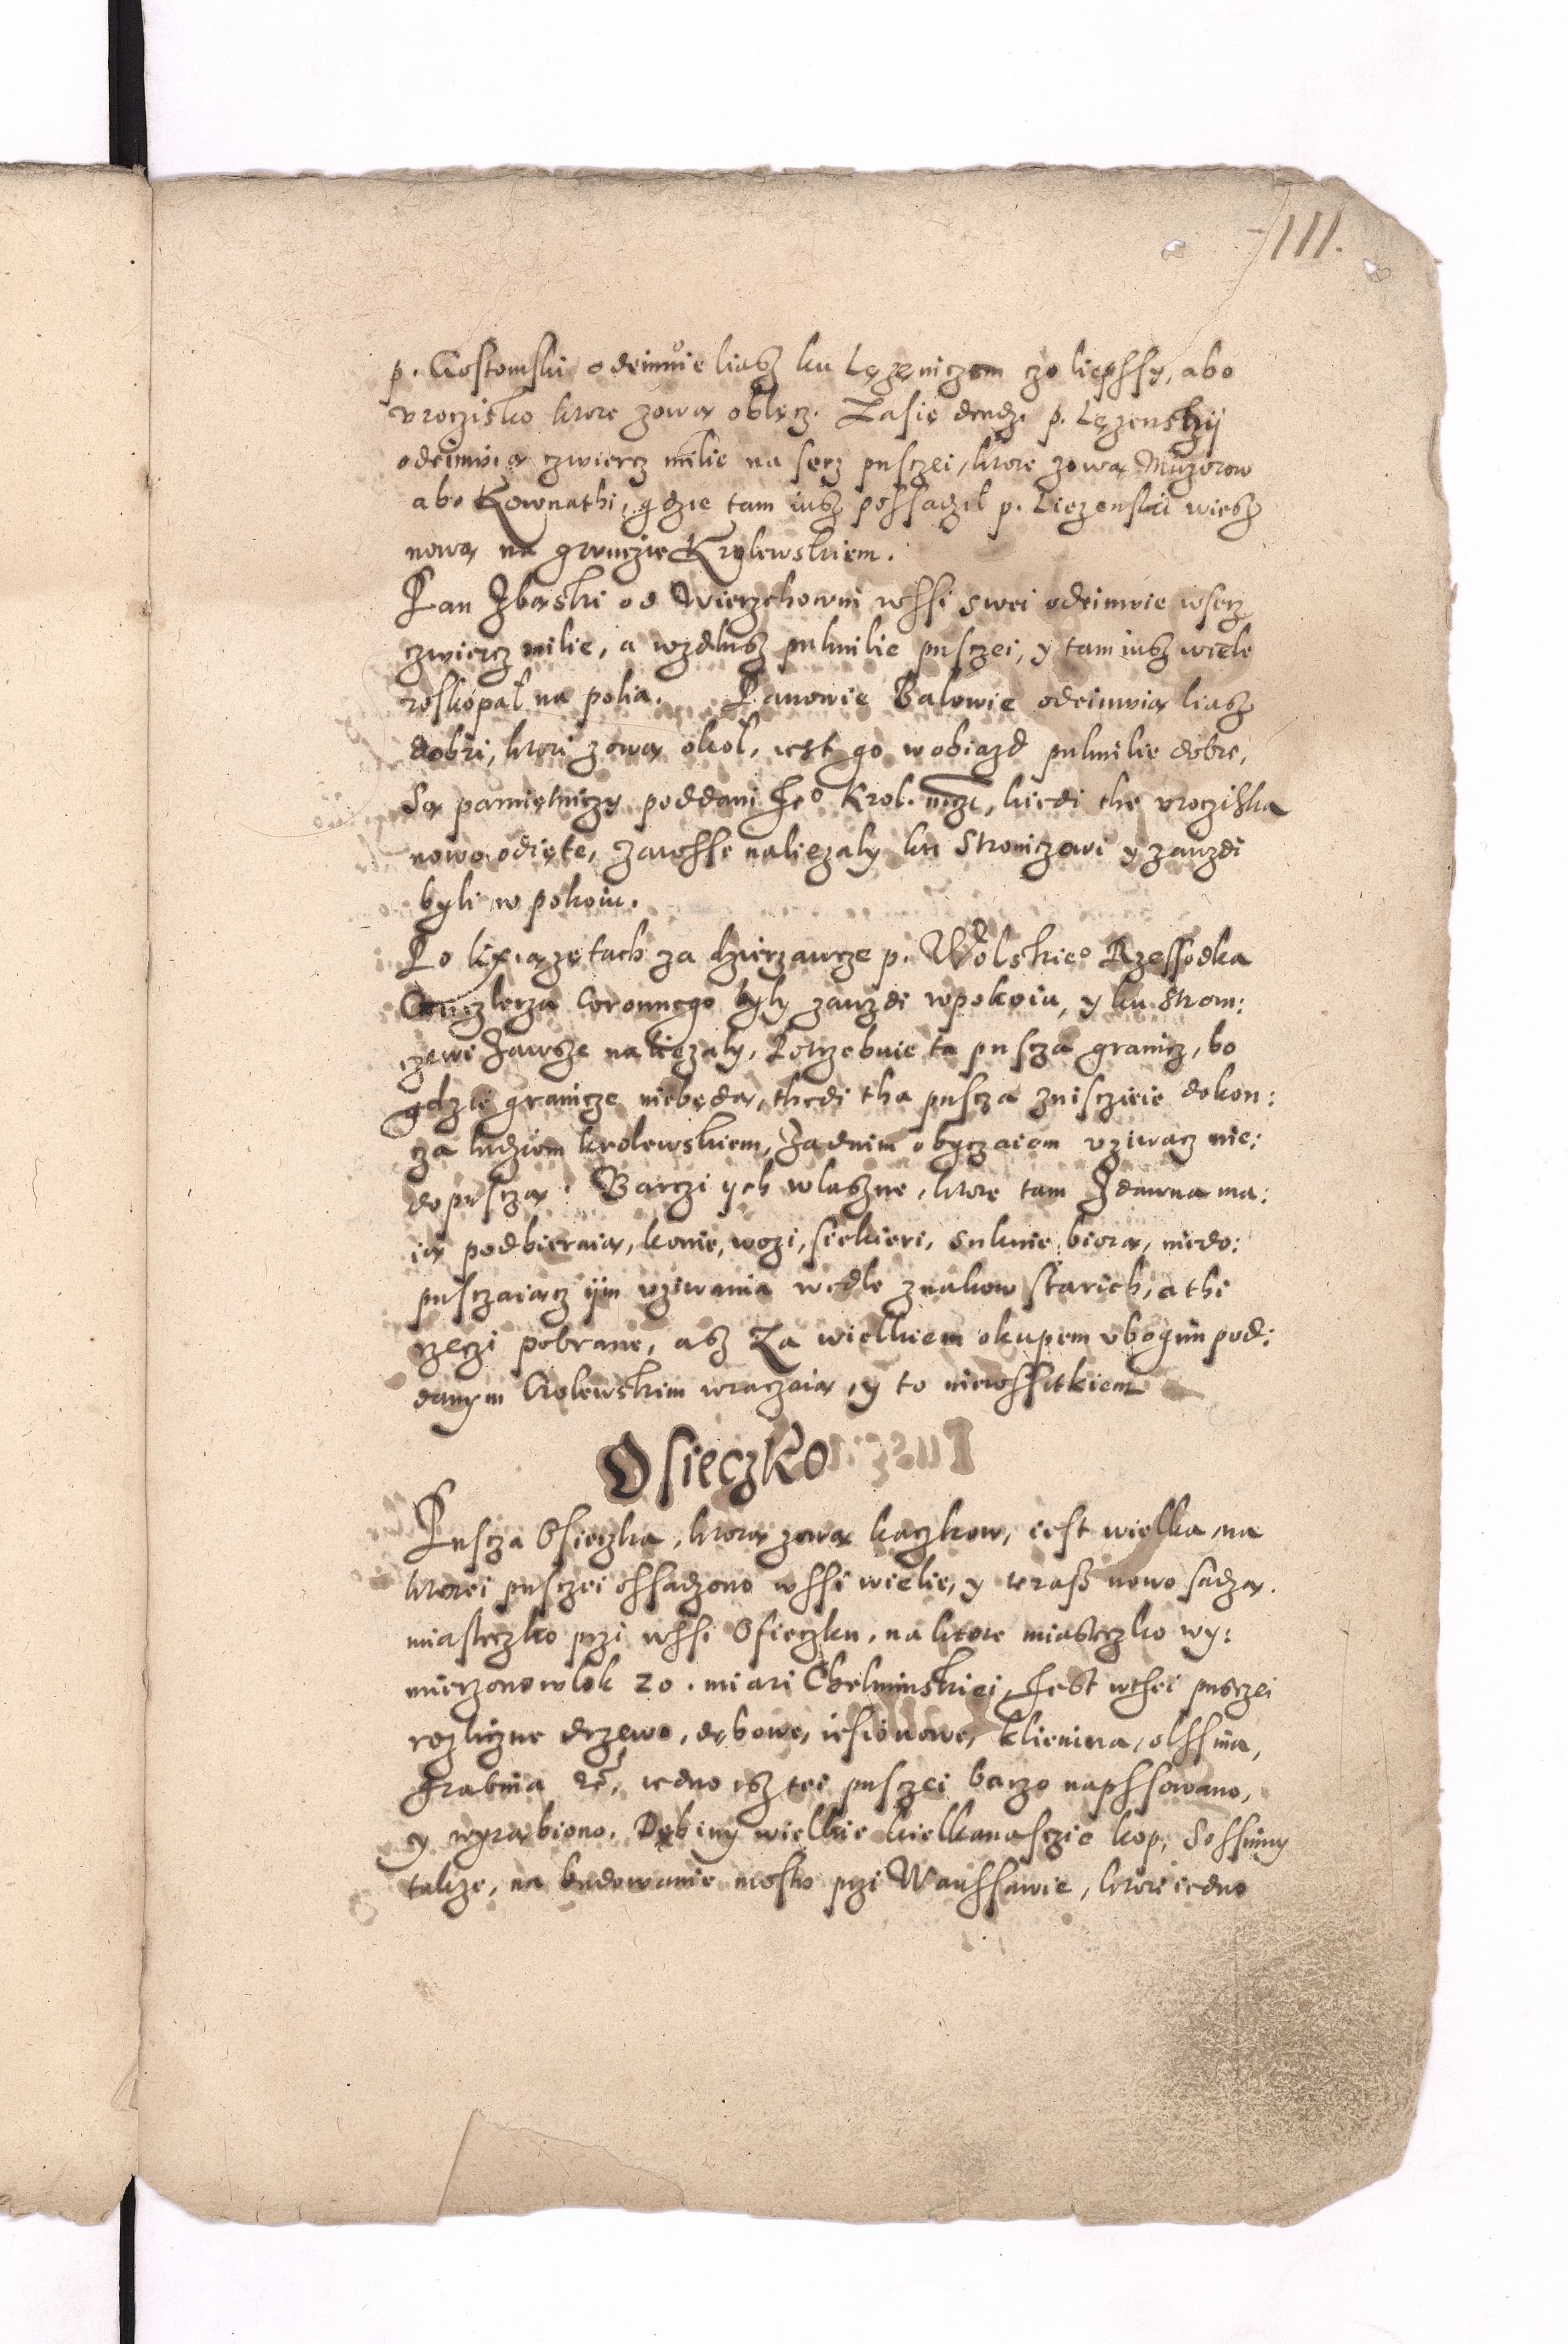 111.
p. Gostomski odeimuie liasz ku Lęzeniczom czo liephssy, abo
vroczisko ktore zową oblęcz. Zasię drudz. p. Lęzenskij
odeimuią czwiercz milie na serz pusczei, ktore zową Muzorow
abo Kownathi, gdzie tam iusz possadzil p. Liezenski wiesz
nową na grunczie Krolewskiem.
Pan Zbąski od Wierzchowni wssi swei odeimuie wserz
czwiercz milie, a wzdlusz pulmilie pusczei, y tam iusz wiele
roskopal na polia. Panowie Balowie odeimuią liasz
dobri, ktori zową okol, iest go wobiazd pulmilie dobre,
Są pamiętniczy poddani Jeo Krol. mczi, kiedi the vrocziska
nowo odięte, zawsse naliezaly ku Stromczewi y zauzdi
byli w pokoiu.
Po Kxiązętach za dzierzawcze p. Wolskieo Rzessodka
Canczlerza Coronnego byly zauzdi wpokoiu, y ku Strom:
czewi zawsze naliezaly, Potrzebuie ta puscza granicz, bo
gdzie granicze niebędą, thedi tha puscza zniscżeie dokon:
cza ludziom krolewskiem, Żadnim obyczaiem vziwacz nie:
dopusczą. Barczi ych wlaszne, ktore tam Zdawna ma:
ią podbieraią, konie, wozi, siekieri, suknie biorą, niedo:
pusczaiącz ijm vziwania wedle znakow starich, a thi
rzeczi pobrane, asz Za wielkiem okupem vbogim pod:
danym Krolewskim wraczaią, y to niewssitkiem
Osieczko
Puscza Osieczka, ktorą zową kaczkow, iest wielka, na
ktorei pusczei ossadzono wssi wielie, y terasz nowo sadzą.
miasteczko przi wssi Osieczku, na ktore miasteczko wy:
mierzono wlok 20. miari Chelminskiei, Jest wthei pusczei
rozliczne drzewo, dębowe, iesionowe, klienina, olssina,
Grabina etc., iedno isz tei pusczei barzo napssowano,
y wyrąbiono. Dębiny wielkie kielkanasczie kop, Sossniny
takze, na budowanie mostu przi Warssawie, ktore iedno